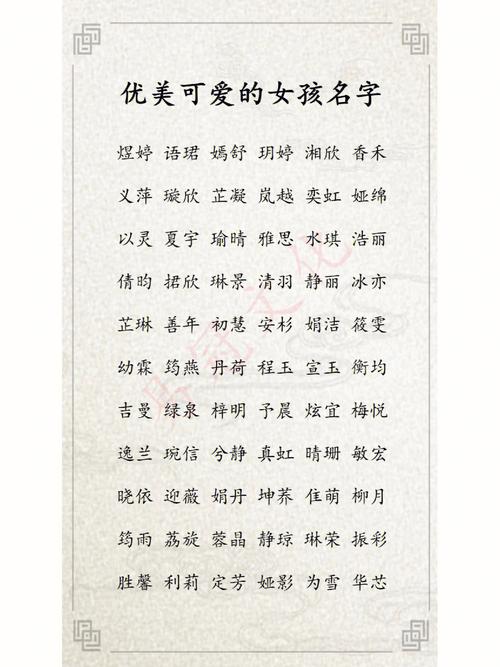 优美可爱的女孩名字
煜婷 语珺 嫣舒 玥婷 湘欣 香禾
义萍 璇欣 芷凝 岚越 奕虹 娅绵
以灵 夏宇 瑜晴 雅思 水琪 浩丽
倩昀 珺欣 琳景 清羽 静丽 冰亦
芷琳 善年 初慧 安杉 娟洁 筱雯
幼霖 筠燕 丹荷 程玉 宣玉 衡均
吉曼 绿泉 梓明 予晨 炫宜 梅悦
逸兰 琬信 兮静 真虹 晴珊 敏宏
晓依 迎薇 娟丹 坤荞 佳萌 柳月
筠雨 荔旋 蓉晶 静琼 琳荣 振彩
胜馨 利莉 定芳 娅影 为雪 华芯